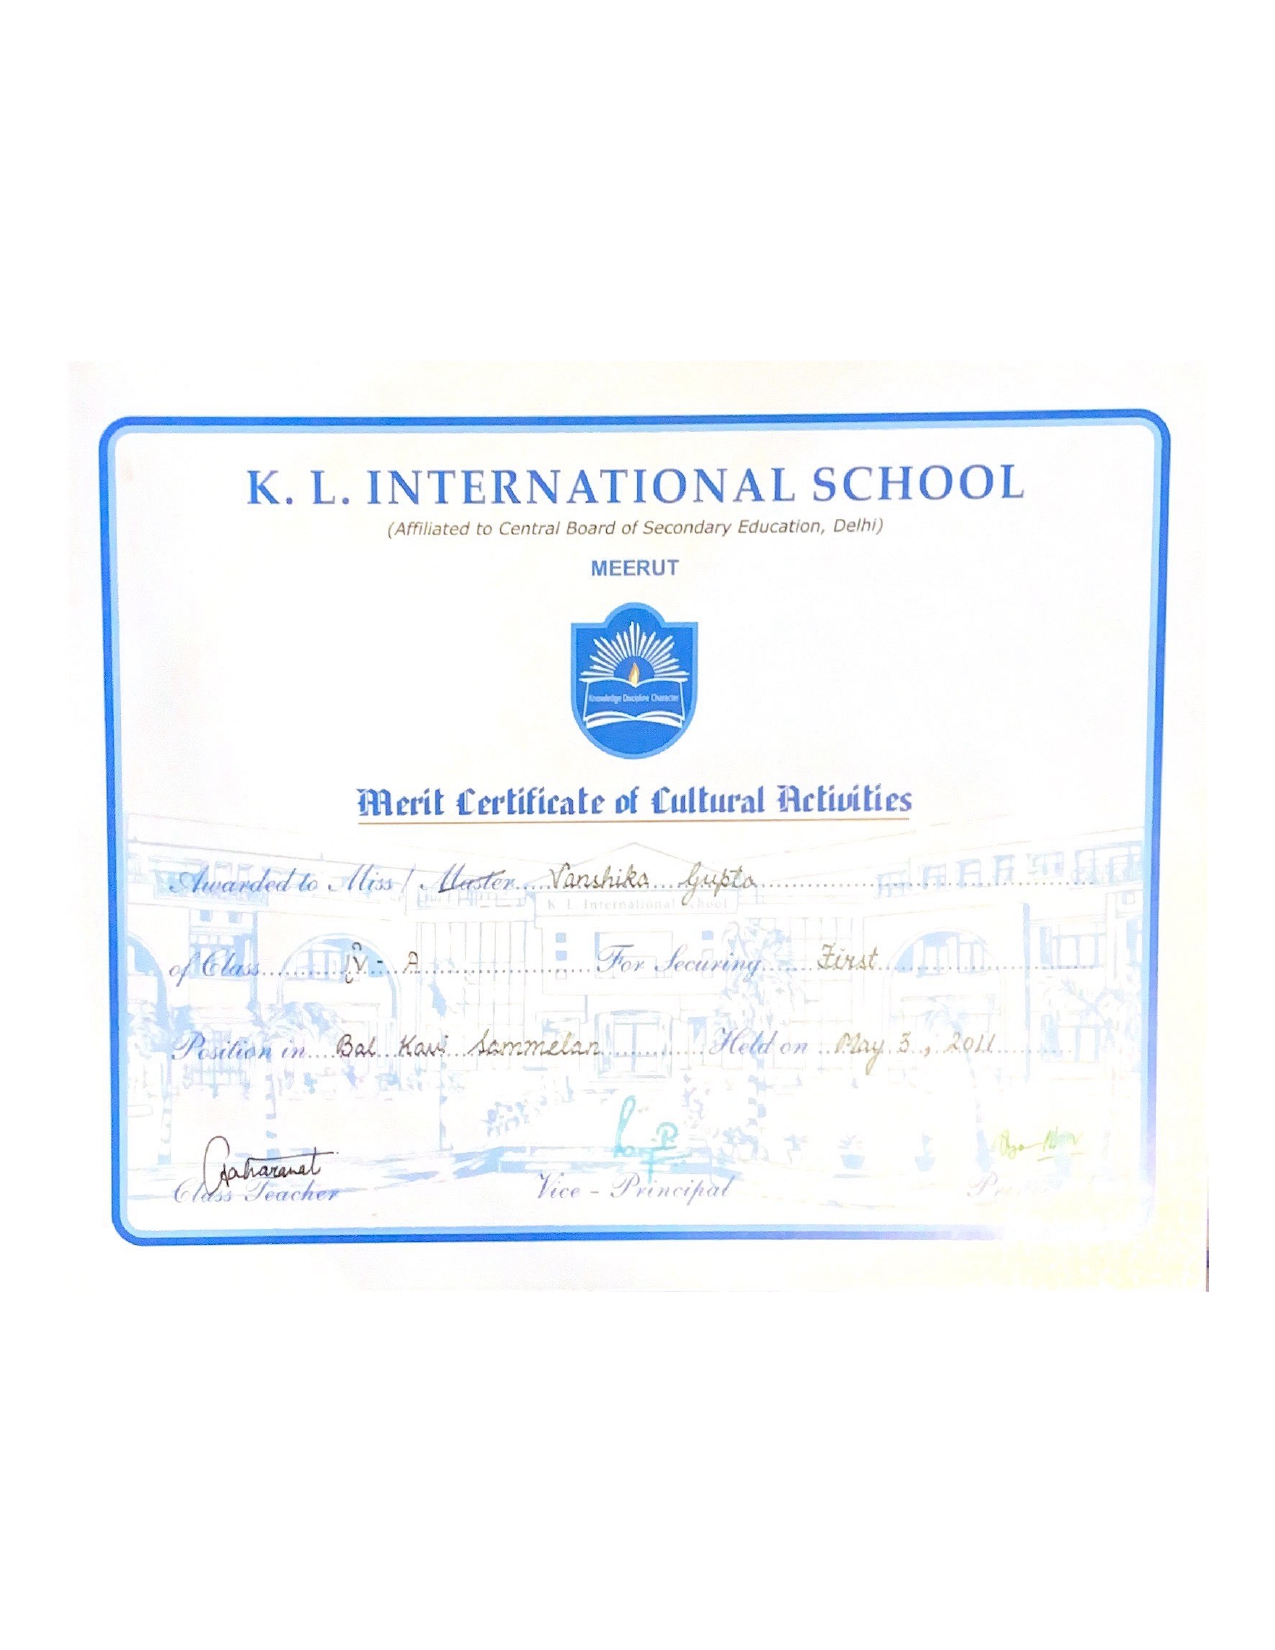 K. L. INTERNATIONAL SCHOOL
(Affiliated to Central Board of Secondary Education, Delhi)
MEERUT
Knowledge Discipline Character
Merit Certificate of Cultural Activities
Awarded to Miss / Master....Vanshika....Gupta
K. L. International School
of Class............IV - A....................For Securing......First
Position in....Bal Kavi Sammelan............Held on ..May 3, 2011
Class Teacher Vice - Principal